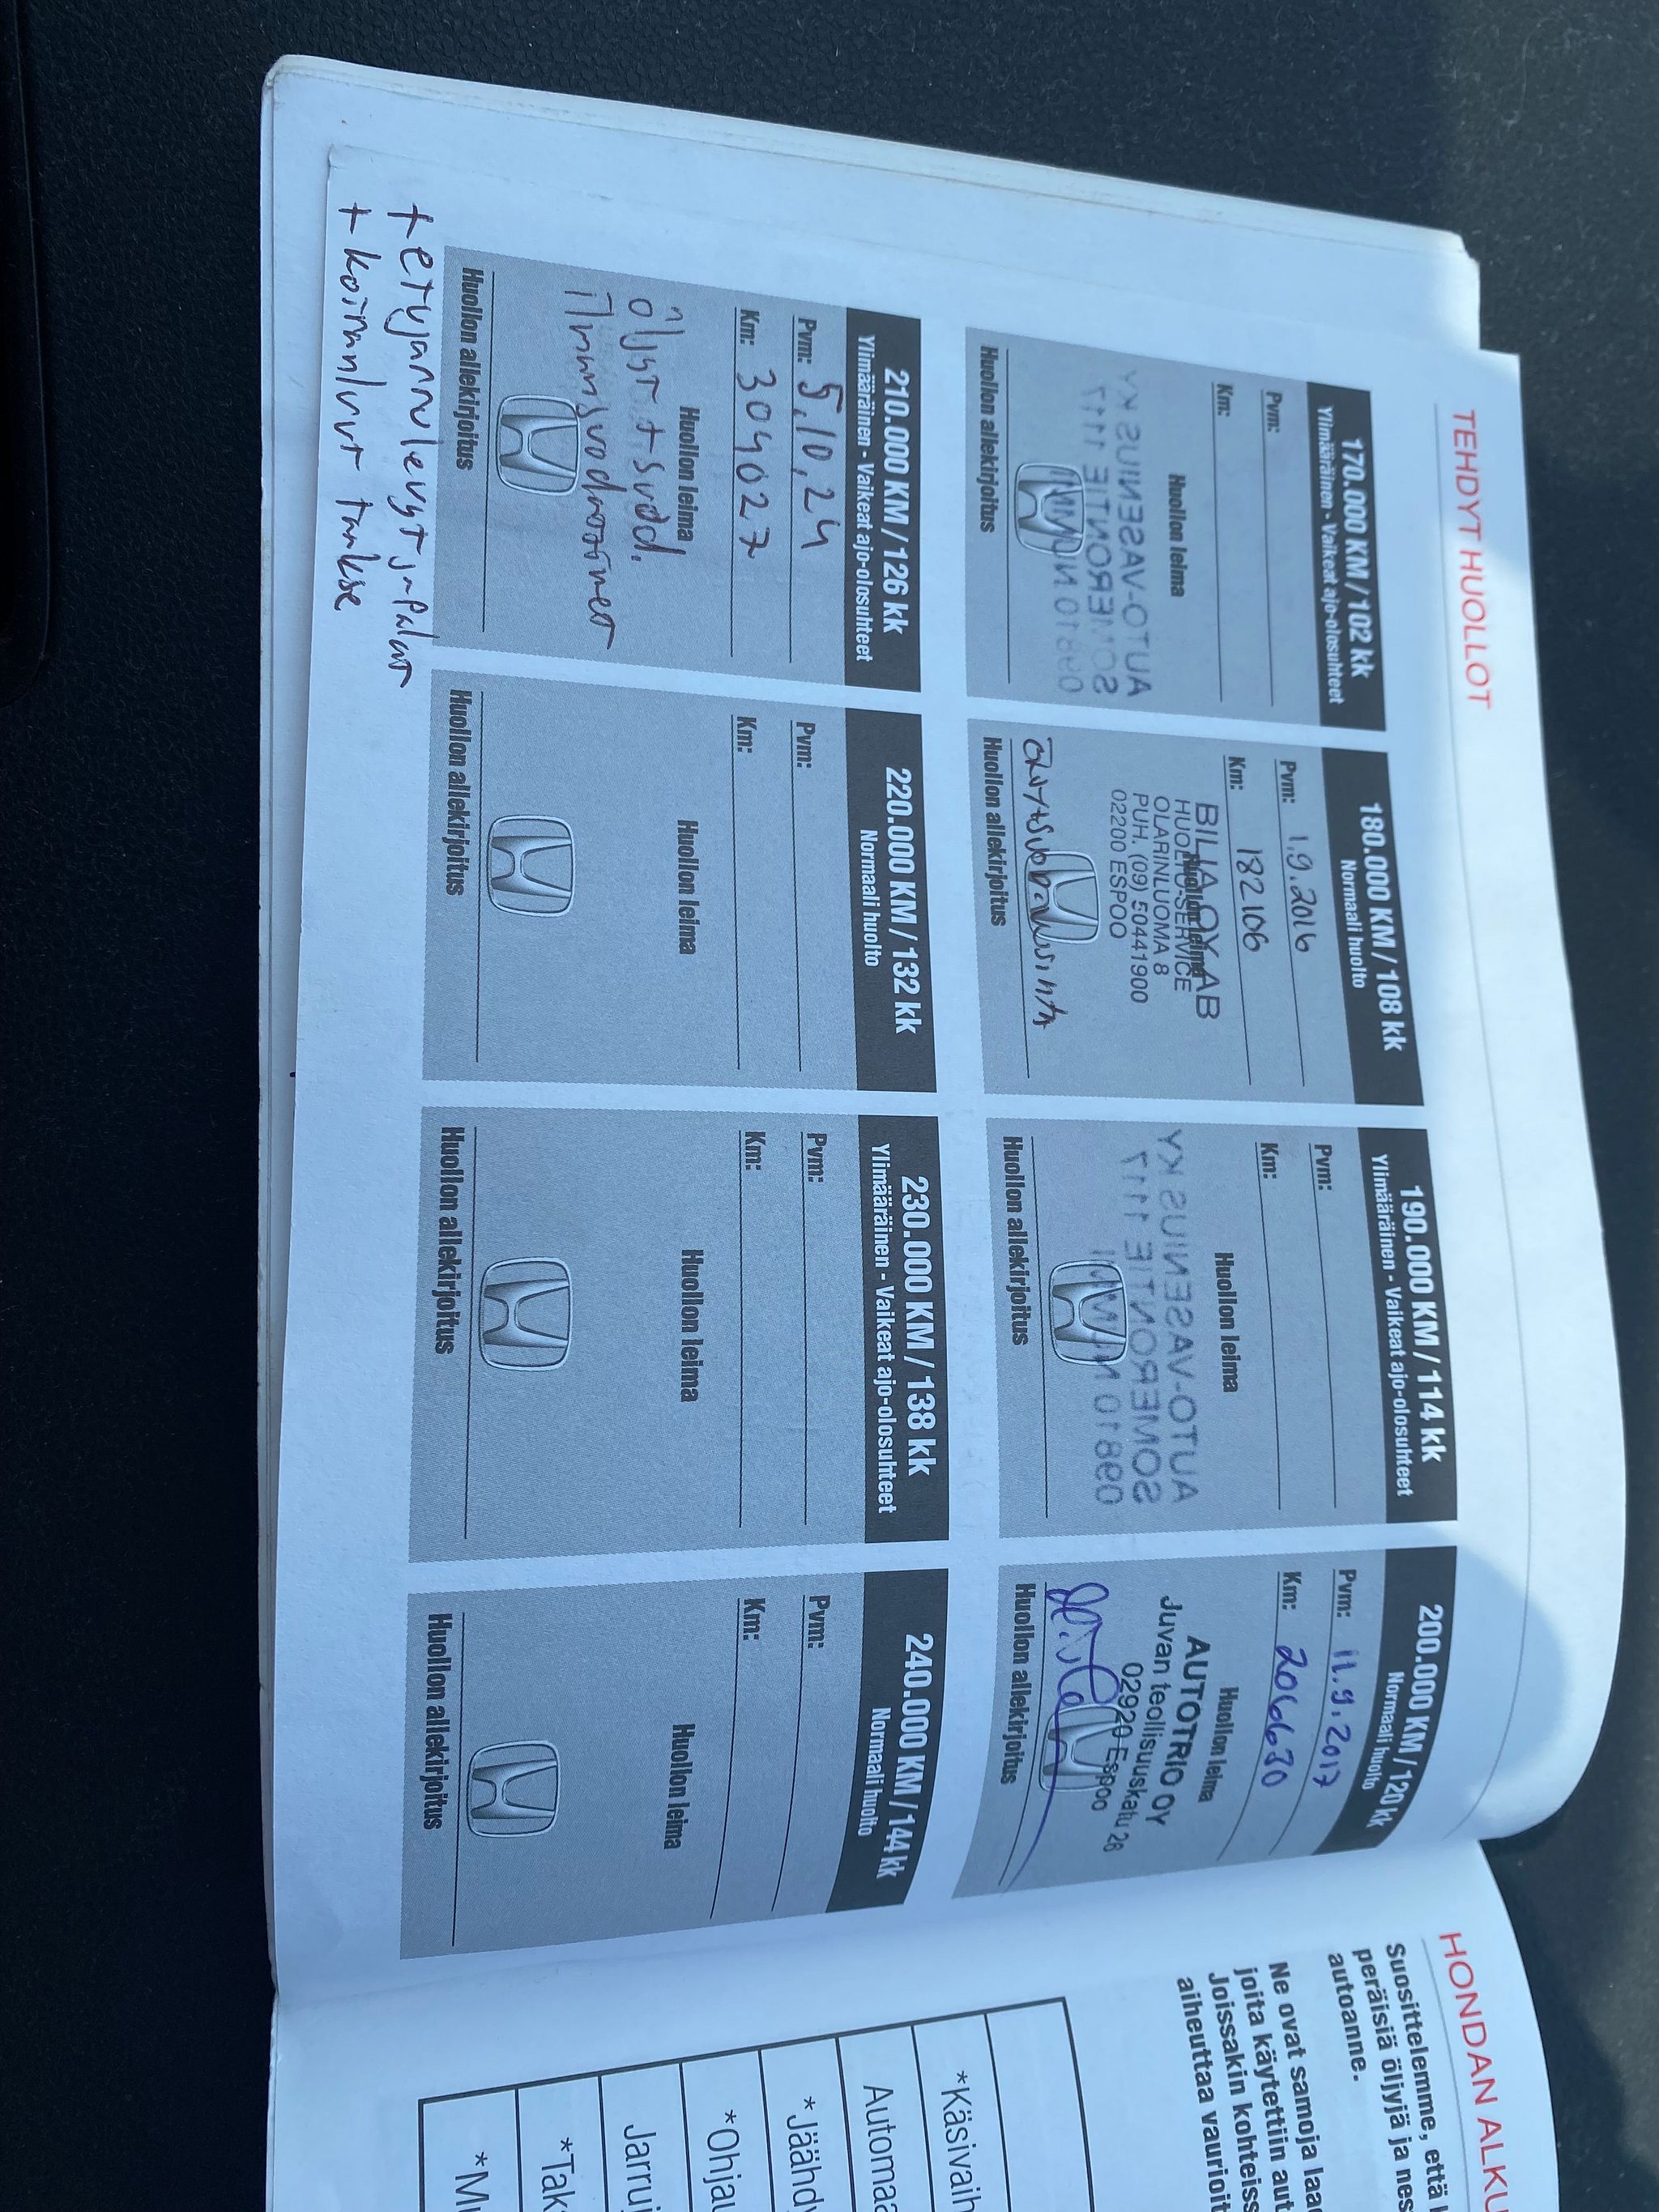 TEHDYT HUOLLOT
170.000 KM / 102 kk
Ylimääräinen - Vaikeat ajo-olosuhteet
Pvm:
Km:
Huollon leima
AUTO-VASENIUS KY
SOMERONTIE
Huollon allekirjoitus
180.000 KM / 108 kk
Normaali huolto
Pvm: 1.9.2016
Km: 182106
Huollon leima
BILIA OY AB
HUOLTO-SERVICE
OLARINLUOMA 8
PUH. (09) 50441900
02200 ESPOO
Huollon allekirjoitus
190.000 KM / 114 kk
Ylimääräinen - Vaikeat ajo-olosuhteet
Pvm:
Km:
Huollon leima
AUTO-VASENIUS KY
SOMERONTIE
Huollon allekirjoitus
200.000 KM / 120 kk
Normaali huolto
Pvm: 11.9.2017
Km: 206630
Huollon leima
AUTOTRIO OY
Juvan teollisuuskatu 28
02920 Espoo
Huollon allekirjoitus
210.000 KM / 126 kk
Ylimääräinen - Vaikeat ajo-olosuhteet
Pvm: 5.10.24
Km: 304027
Huollon leima
öljyt + suod.
ilmansuodattimet
Huollon allekirjoitus
+ etujarrulevyt ja palat
+ koiranluut taakse
220.000 KM / 132 kk
Normaali huolto
Pvm:
Km:
Huollon leima
Huollon allekirjoitus
230.000 KM / 138 kk
Ylimääräinen - Vaikeat ajo-olosuhteet
Pvm:
Km:
Huollon leima
Huollon allekirjoitus
240.000 KM / 144 kk
Normaali huolto
Pvm:
Km:
Huollon leima
Huollon allekirjoitus
HONDAN ALKU
Suosittelemme, että
peräisiä öljyjä ja nes
autoanne.
Ne ovat samoja laa
joita käytettiin aut
Joissakin kohteiss
aiheuttaa vaurioit
*Käsivaih
Automaa
*Jäähdy
*Ohjau
Jarruj
*Tak
*Mu